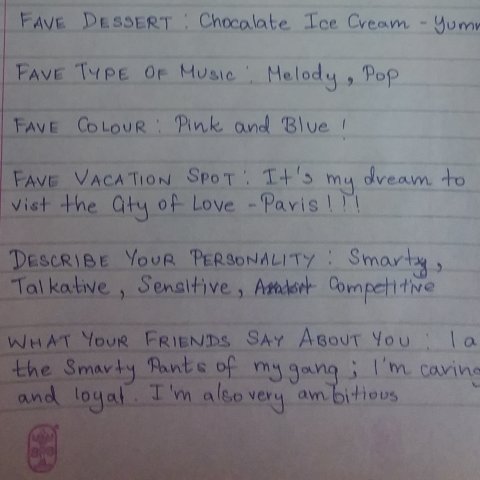 FAVE DESSERT : Chocalate Ice Cream - Yumm
FAVE TYPE OF MUSIC : Melody, Pop
FAVE COLOUR : Pink and Blue !
FAVE VACATION SPOT : It's my dream to
vist the City of Love - Paris ! ! !
DESCRIBE YOUR PERSONALITY : Smarty,
Talkative, Sensitive, Competitive
WHAT YOUR FRIENDS SAY ABOUT YOU : I a
the Smarty Pants of my gang ; I'm caring
and loyal. I'm also very ambitious